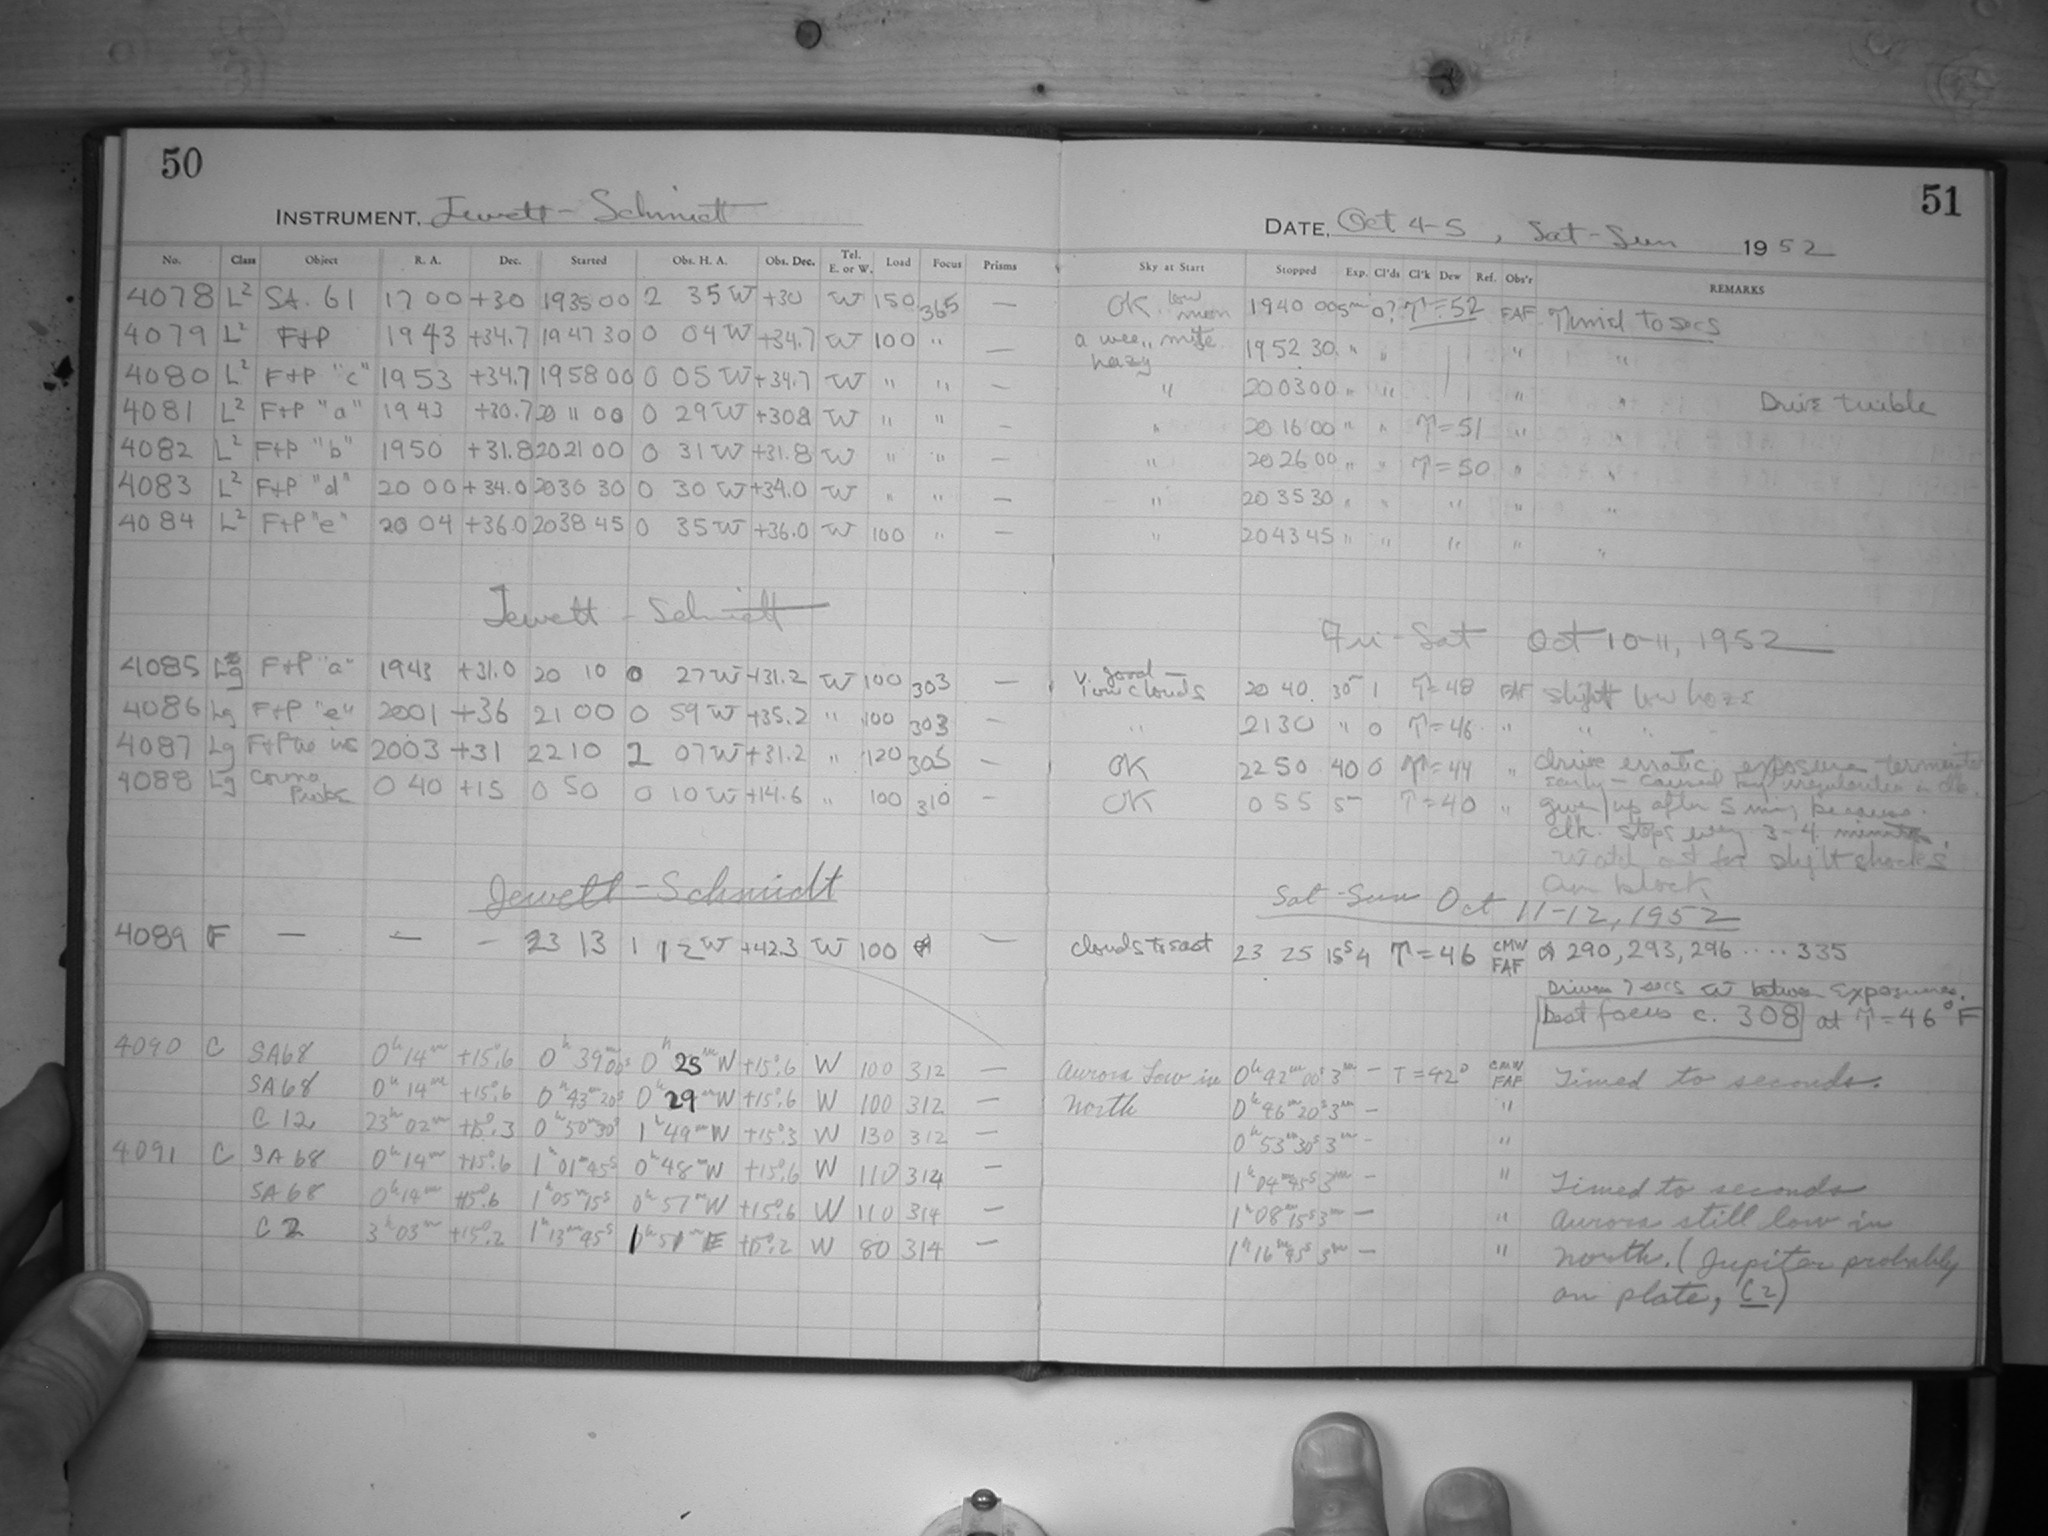 50
51
INSTRUMENT. Jewett - Schmidt
DATE. Oct 4-5, Sat-Sun 1952
No. Class Object R. A. Dec. Started Obs. H. A. Obs. Dec. Tel. E. or W. Load Focus Prisms Sky at Start Stopped Exp. Cl'ds Cl'k Dew Ref. Obs'r REMARKS
4078 L² SA. 61 17 00 +30 19 35 00 2 35 W +30 W 150 365 — OK low moon 19 40 00 5m 0? T=52 FAF Timed to secs
4079 L² F+P 19 43 +34.7 19 47 30 0 04 W +34.7 W 100 " — a wee mite hazy 19 52 30 " " " "
4080 L² F+P "c" 19 53 +34.7 19 58 00 0 05 W +34.7 W " " — " 20 03 00 " " " " Drive trouble
4081 L² F+P "a" 19 43 +30.7 20 11 00 0 29 W +30.8 W " " — " 20 16 00 " " T=51 " "
4082 L² F+P "b" 19 50 +31.8 20 21 00 0 31 W +31.8 W " " — " 20 26 00 " " T=50 " "
4083 L² F+P "d" 20 00 +34.0 20 30 30 0 30 W +34.0 W " " — " 20 35 30 " " " " "
4084 L² F+P "e" 20 04 +36.0 20 38 45 0 35 W +36.0 W 100 " — " 20 43 45 " " " " "
Jewett - Schmidt
Fri - Sat Oct 10-11, 1952
4085 Lg F+P "a" 19 43 +31.0 20 10 0 27 W +31.2 W 100 303 — v. good — low clouds 20 40 30 1 T=48 FAF slight low haze
4086 Lg F+P "e" 20 01 +36 21 00 0 59 W +35.2 " 100 303 — " 21 30 " 0 T=46 " " "
4087 Lg F+P 20 03 +31 22 10 2 07 W +31.2 " 120 305 — OK 22 50 40 0 T=44 " drive erratic exposure terminated
early — caused by irregularities in clk.
4088 Lg Corona Probs 0 40 +15 0 50 0 10 W +14.6 " 100 310 — OK 0 55 5 T=40 " given up after 5 min, because
clk. stops every 3-4 minutes.
Watch out for slight shocks
on block
Jewett - Schmidt
Sat - Sun Oct 11-12, 1952
4089 F — — — 23 13 1 12 W +42.3 W 100 — clouds to east 23 25 15s 4 T=46 CMW FAF 290, 293, 296 .... 335
Driven 7 secs W between exposures.
best focus c. 308 at T=46°F
4090 C SA68 0h 14m +15°.6 0h 39m 00s 0h 25m W +15°.6 W 100 312 — Aurora low in 0h 42m 00s 3m — T=42° CMW FAF Timed to seconds.
SA68 0h 14m +15°.6 0h 43m 20s 0h 29m W +15°.6 W 100 312 — north 0h 46m 20s 3m — "
C 12 23h 02m +15°.3 0h 50m 30s 1h 49m W +15°.3 W 130 312 — 0h 53m 30s 3m — "
4091 C SA68 0h 14m +15°.6 1h 01m 45s 0h 48m W +15°.6 W 110 314 — 1h 04m 45s 3m — " Timed to seconds
SA68 0h 14m +15°.6 1h 05m 15s 0h 57m W +15°.6 W 110 314 — 1h 08m 15s 3m — " Aurora still low in
C 2 3h 03m +15°.2 1h 13m 45s 1h 51m E +15°.2 W 80 314 — 1h 16m 45s 3m — " north. (Jupiter probably
on plate, C2)